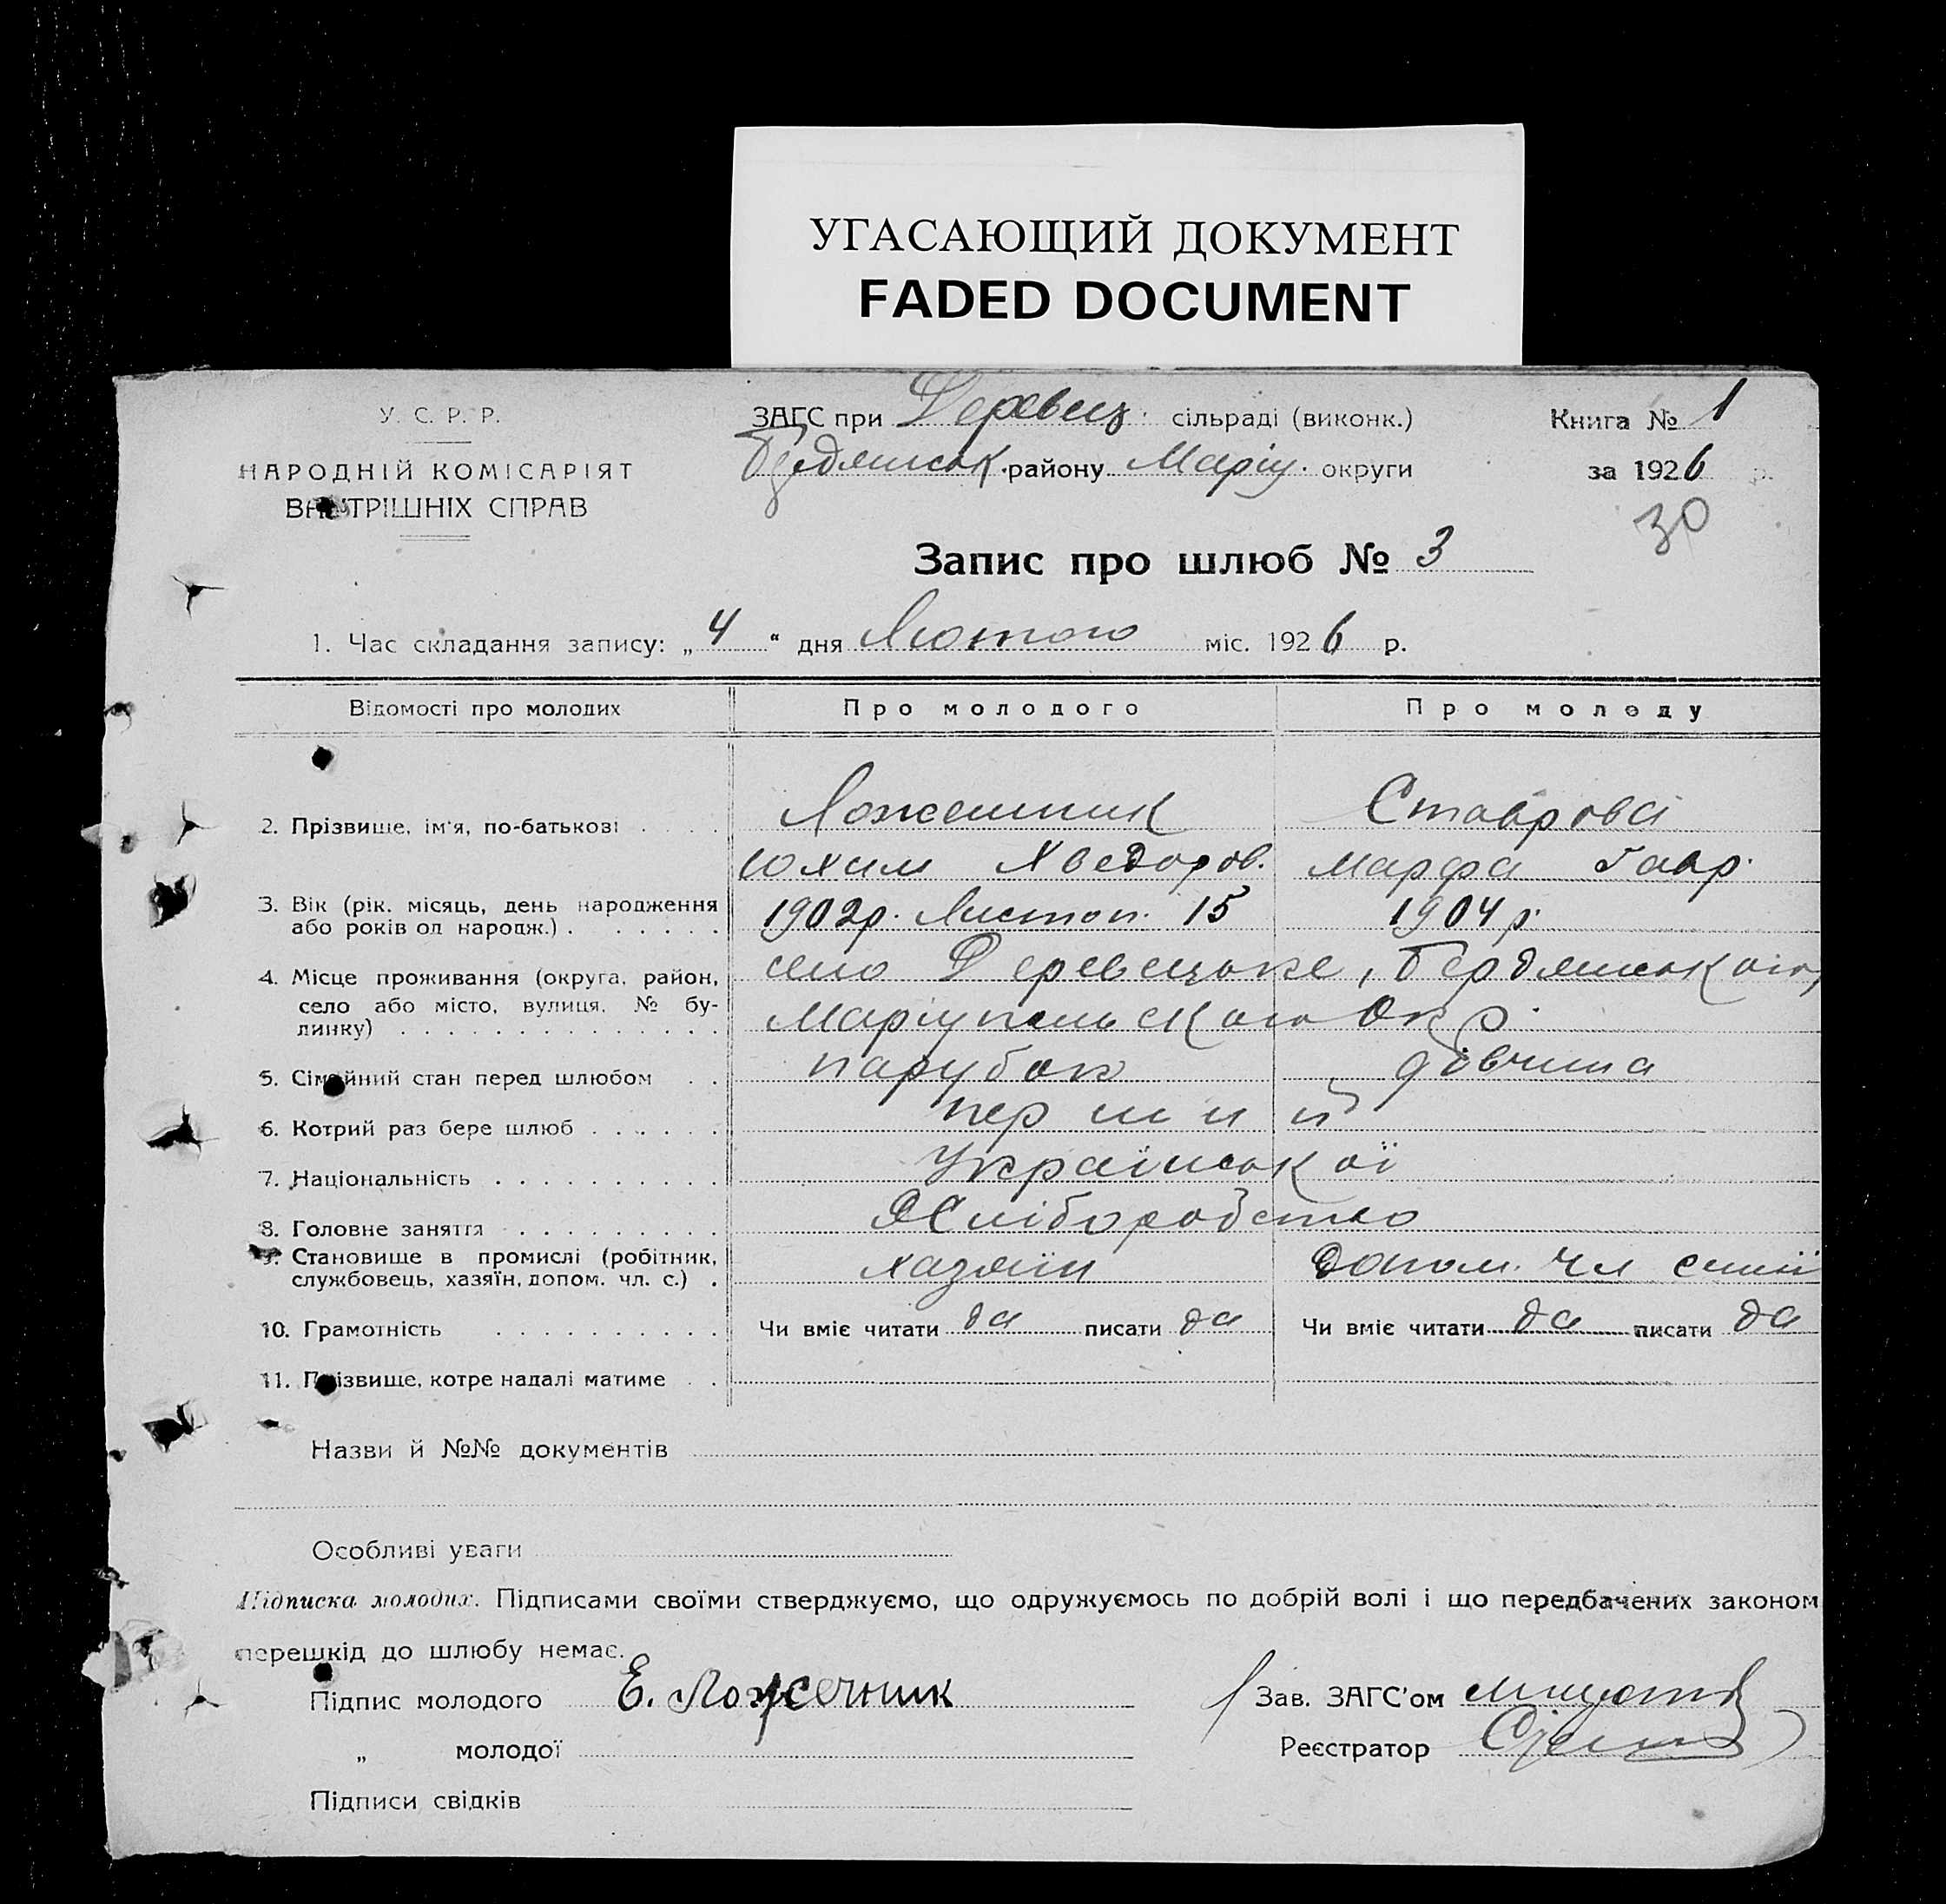 УГАСАЮЩИЙ ДОКУМЕНТ
FADED DOCUMENT
У. С. Р. Р.
НАРОДНІЙ КОМІСАРІЯТ
ВНУТРІШНІХ СПРАВ
ЗАГС при Деревец. сільраді (виконк.)
Бердянськ. району Маріу. округи
Книга № 1
за 1926 р.
30
Запис про шлюб № 3
1. Час складання запису: „ 4 “ дня Лютого міс. 1926 р.
Відомості про молодих Про молодого Про молоду
2. Прізвище, ім'я, по-батькові . . . . Ложешник Ставрова
Юхим Хведоров. Марфа Гавр.
3. Вік (рік. місяць, день народження
або років од народж.) . . . . . . 1902р. Листоп. 15 1904 р.
4. Місце проживання (округа, район,
село або місто, вулиця, № бу-
динку) . . . . . . . . . . . . . .
село Деревецьке, Бердянського,
Маріупольського Окр.
5. Сімейний стан перед шлюбом . . парубок дівчина
6. Котрий раз бере шлюб . . . . . . перший
7. Національність . . . . . . . . . . Української
8. Головне заняття . . . . . . . . . Хліборобство
9. Становище в промислі (робітник,
службовець, хазяїн, допом. чл. с.) . хазяїн допом. чл сімії
10. Грамотність . . . . . . . . . . Чи вміє читати да писати да Чи вміє читати да писати да
11. Прізвище, котре надалі матиме . .
Назви й №№ документів
Особливі уваги
Підписка молодих. Підписами своїми стверджуємо, що одружуємось по добрій волі і що передбачених законом
перешкід до шлюбу немає.
Підпис молодого Е. Ложечник
Зав. ЗАГС'ом
„ молодої
Реєстратор
Підписи свідків